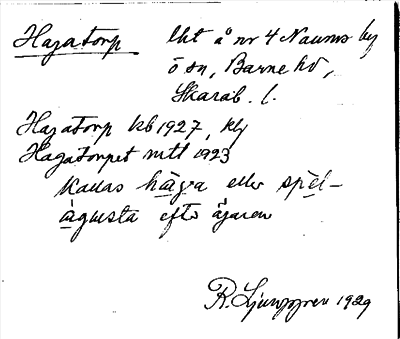 Hagatorp lht å nr 4 Naums by
ö sn, Barne hd,
Skarab. l.
Hagatorp kb 1927, klg
Hagatorpet mtl 1923
Kallas hàgra eller spèl-
àgusta efter ägaren
R. Ljunggren 1929